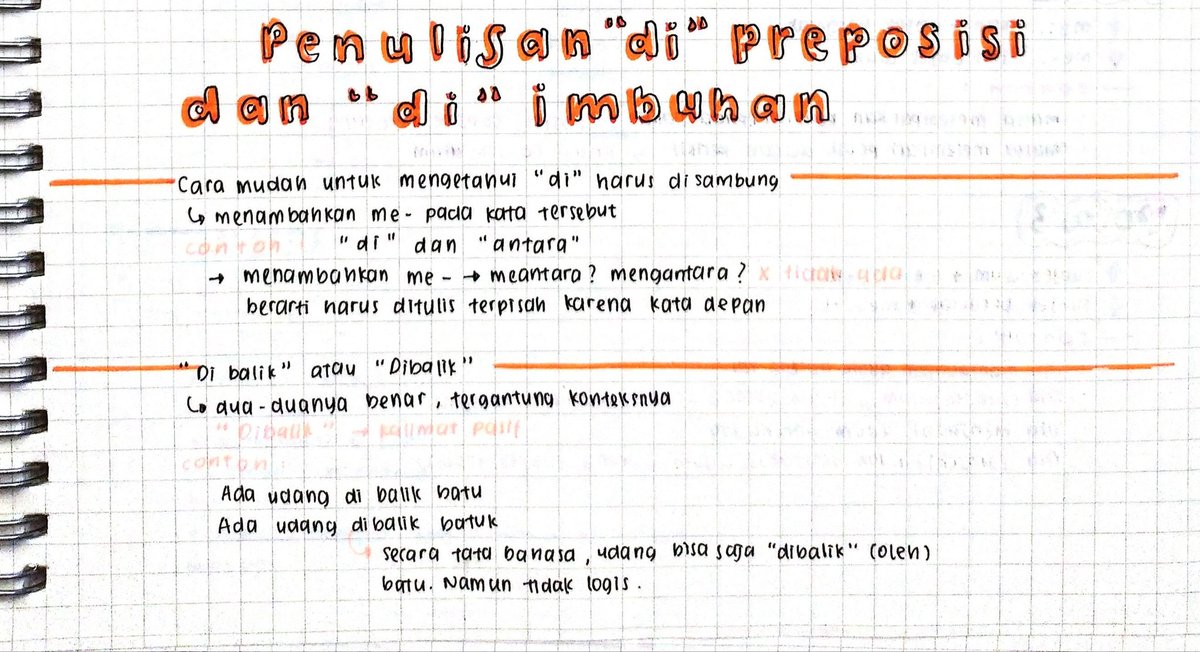 Penulisan "di" preposisi
dan "di" imbuhan
Cara mudah untuk mengetahui "di" harus disambung
↳ menambahkan me- pada kata tersebut
contoh : "di" dan "antara"
→ menambahkan me- → meantara? mengantara? x tidak ada
berarti harus ditulis terpisah karena kata depan
"Di balik" atau "Dibalik"
↳ dua-duanya benar, tergantung konteksnya
"Dibalik" → kalimat pasif
contoh :
Ada udang di balik batu
Ada udang dibalik batuk
↳ secara tata bahasa, udang bisa saja "dibalik" (oleh)
batu. Namun tidak logis.